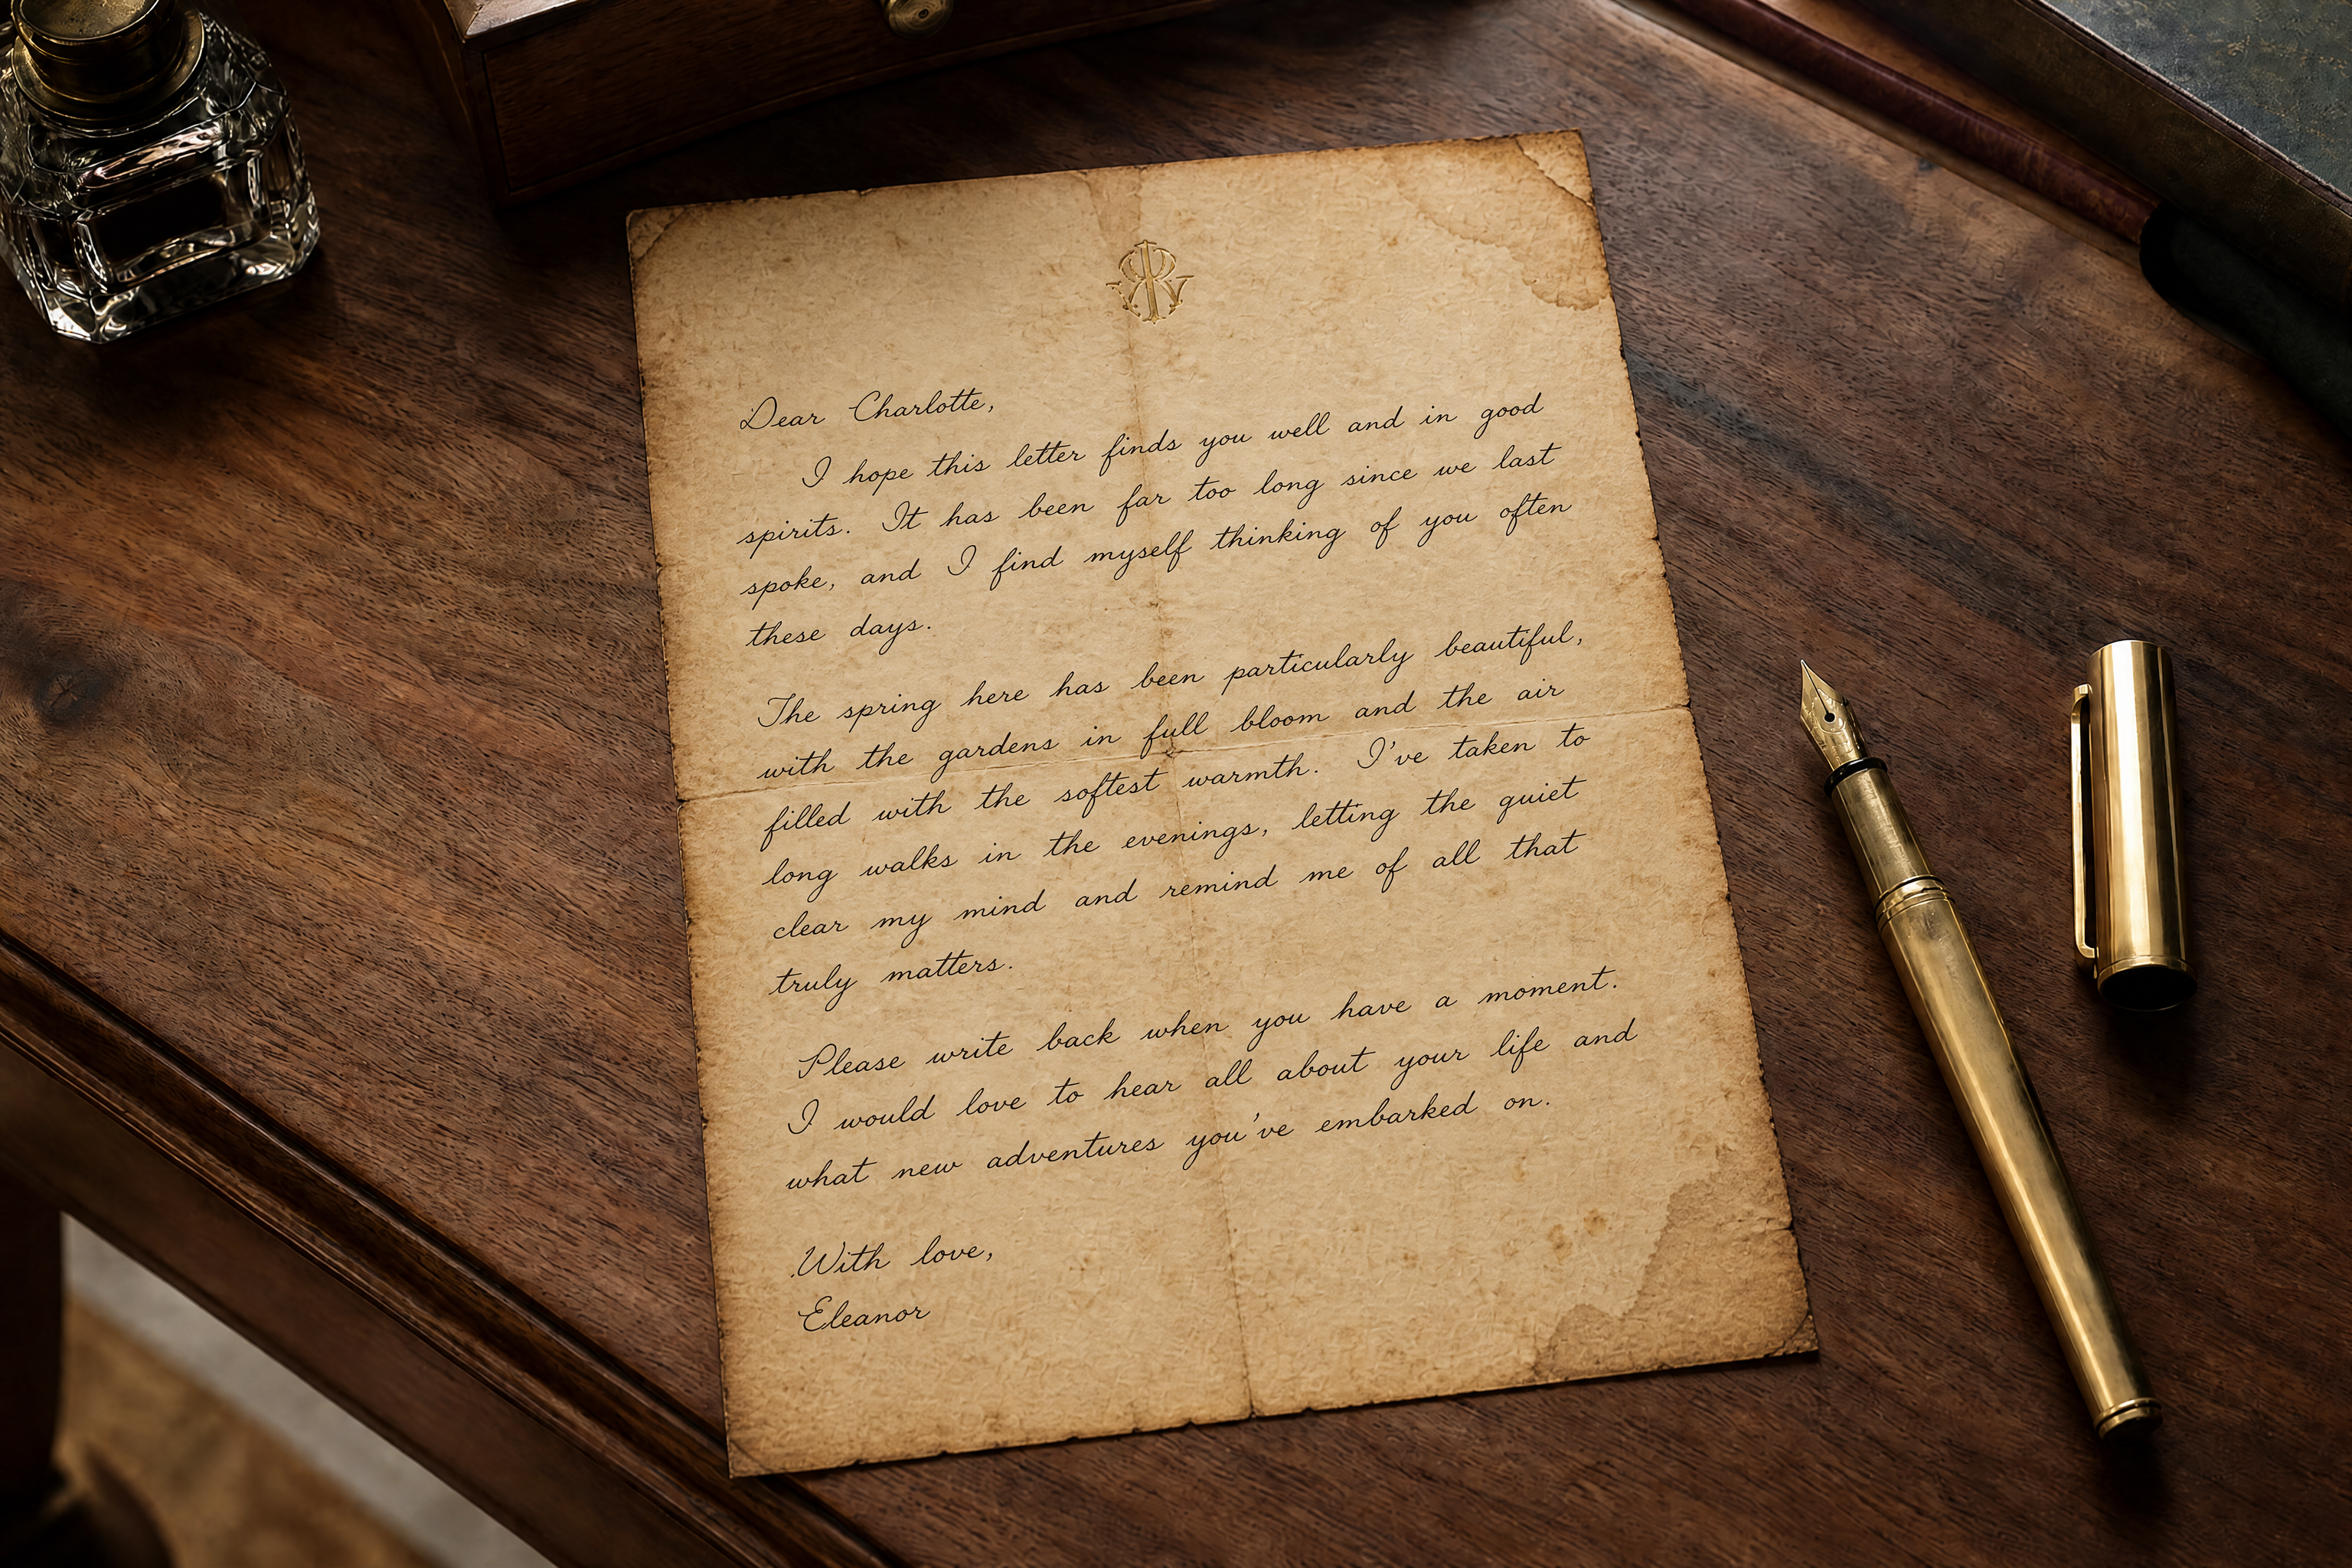 Dear Charlotte,
I hope this letter finds you well and in good
spirits. It has been far too long since we last
spoke, and I find myself thinking of you often
these days.
The spring here has been particularly beautiful,
with the gardens in full bloom and the air
filled with the softest warmth. I've taken to
long walks in the evenings, letting the quiet
clear my mind and remind me of all that
truly matters.
Please write back when you have a moment.
I would love to hear all about your life and
what new adventures you've embarked on.
With love,
Eleanor